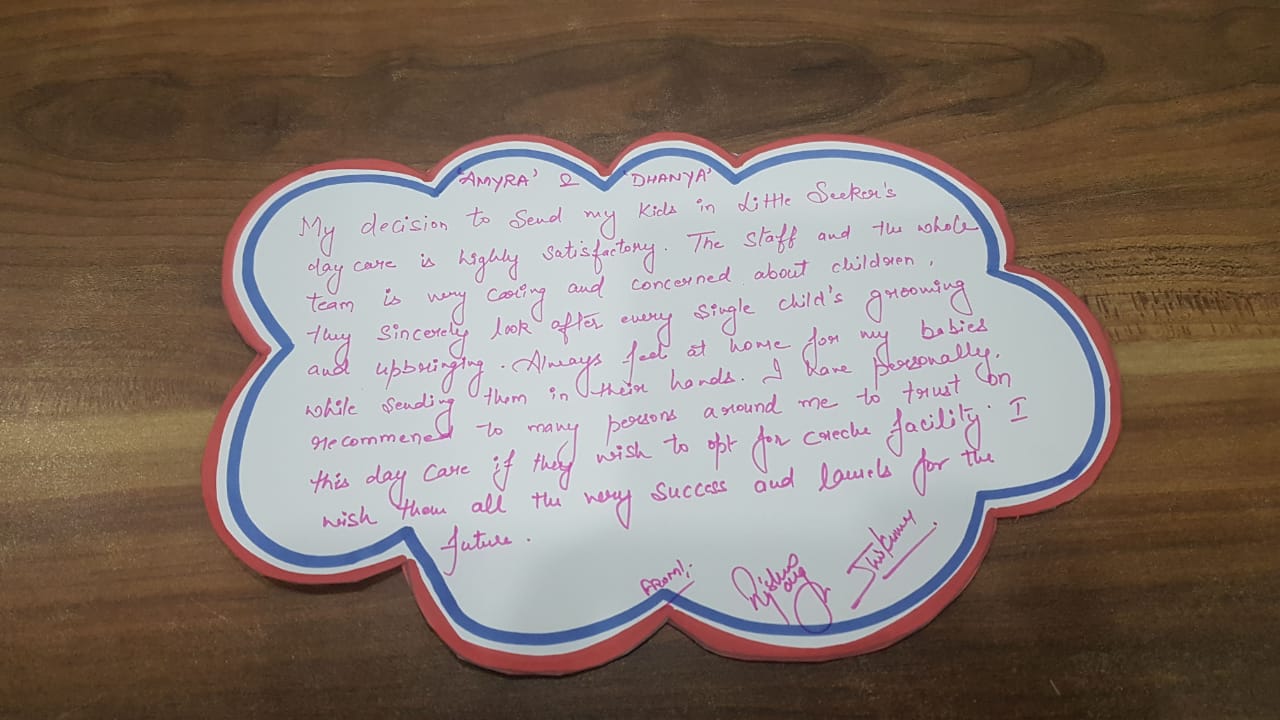 'AMYRA' & 'DHANYA'
My decision to Send my Kids in Little Seeker's
day care is highly satisfactory. The staff and the whole
team is very caring and concerned about children.
they sincerely look after every single child's grooming
and upbringing. Always feel at home for my babies
while sending them in their hands. I have personally
recommened to many persons around me to trust on
this day care if they wish to opt for creche facility. I
wish them all the very success and laurels for the
future.
FROM:-